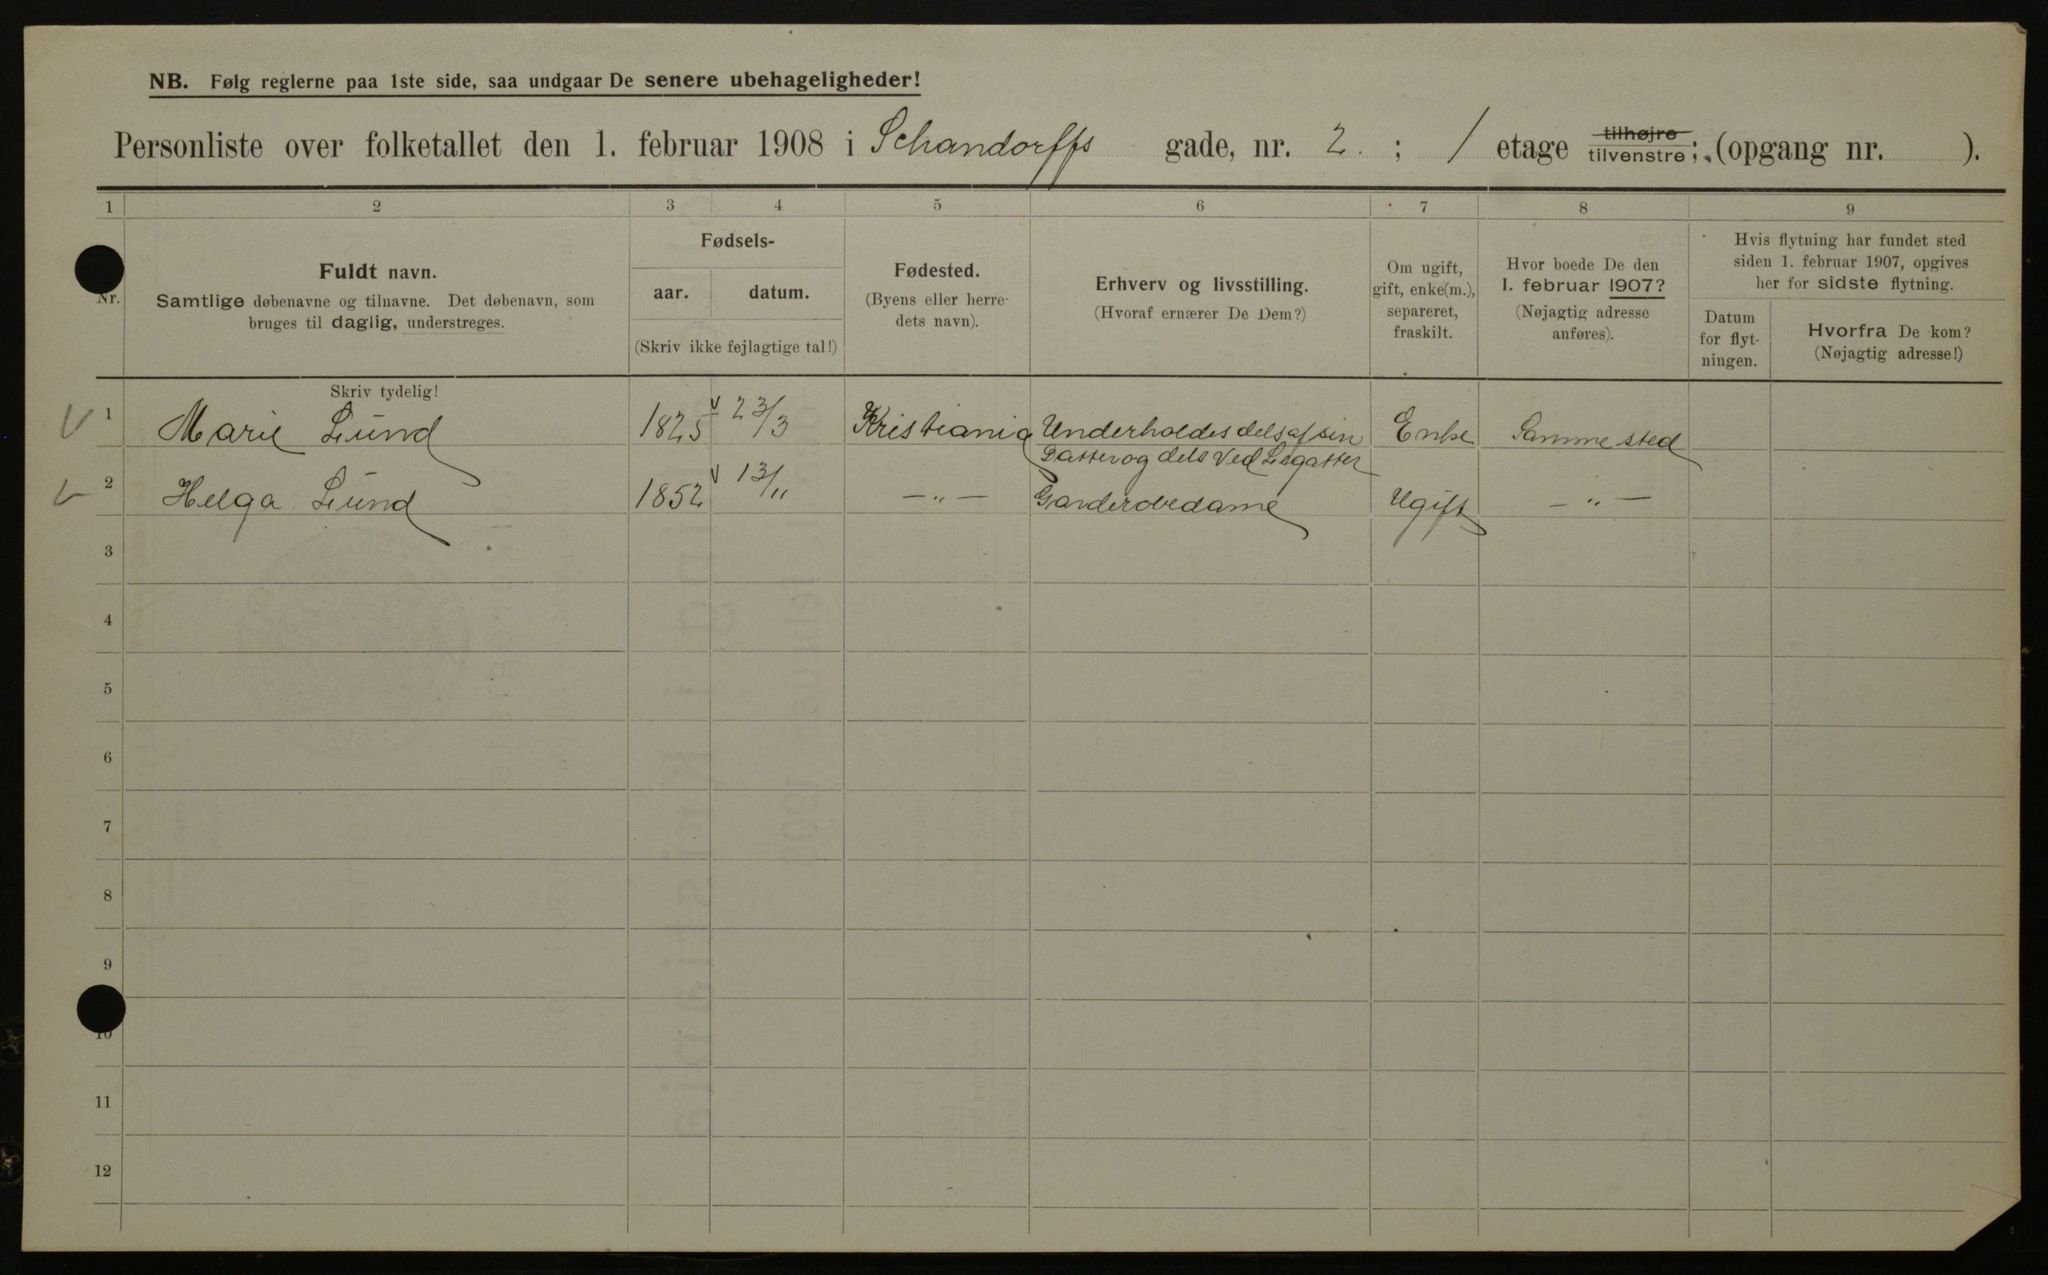 NB. Følg reglerne paa 1ste side, saa undgaar De senere ubehageligheder!
Personliste over folketallet den 1. februar 1908 i Schandorffs gade, nr. 2. ; 1 etage tilhøjre tilvenstre; (opgang nr. ).
1 2 3 4 5 6 7 8 9
Nr.
Fuldt navn.
Samtlige døbenavne og tilnavne. Det døbenavn, som
bruges til daglig, understreges.
Skriv tydelig!
Fødsels-
aar. datum.
(Skriv ikke fejlagtige tal!)
Fødested.
(Byens eller herre-
dets navn).
Erhverv og livsstilling.
(Hvoraf ernærer De Dem?)
Om ugift,
gift, enke(m.),
separeret,
fraskilt.
Hvor boede De den
1. februar 1907?
(Nøjagtig adresse
anføres).
Hvis flytning har fundet sted
siden 1. februar 1907, opgives
her for sidste flytning.
Datum
for flyt-
ningen.
Hvorfra De kom?
(Nøjagtig adresse!)
1 Marie Lund 1825 23/3 Kristiania Underholdes dels af sin Enke Samme sted
Datter og dels ved Legatter
2 Helga Lund 1852 13/11 —"— Garderobedame Ugift —"—
3
4
5
6
7
8
9
10
11
12